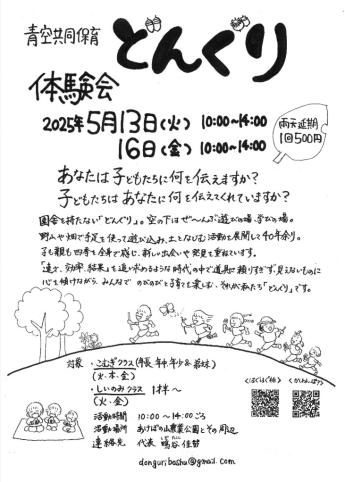 青空共同保育 どんぐり
体験会
2025年5月13日(火) 10:00~14:00
16日(金) 10:00~14:00
雨天延期
1回500円
あなたは子どもたちに何を伝えますか?
子どもたちはあなたに何を伝えてくれていますか?
園舎を持たない「どんぐり」。空の下はぜ〜んぶ遊びの場、学びの場。
野山や畑で手足を使って遊び込み、土となじむ活動を展開して40年余り。
子も親も四季を全身で感じ、新しい出会いや発見を重ねています。
「速さ、効率、結果」を追い求めるような時代の中で道具に頼りすぎず、見えないものに
心を傾けながら、みんなでのびのびと子育てを楽しむ、それが私たち「どんぐり」です。
対象・こむぎクラス(年長 年中 年少&
(火・木・金)
・しいのみクラス 1才半〜
(火、金)
活動時間 10:00〜14:00ごろ
活動場所 あけぼの山農業公園とその周辺
連絡先 代表
donguribashu@gmail.com